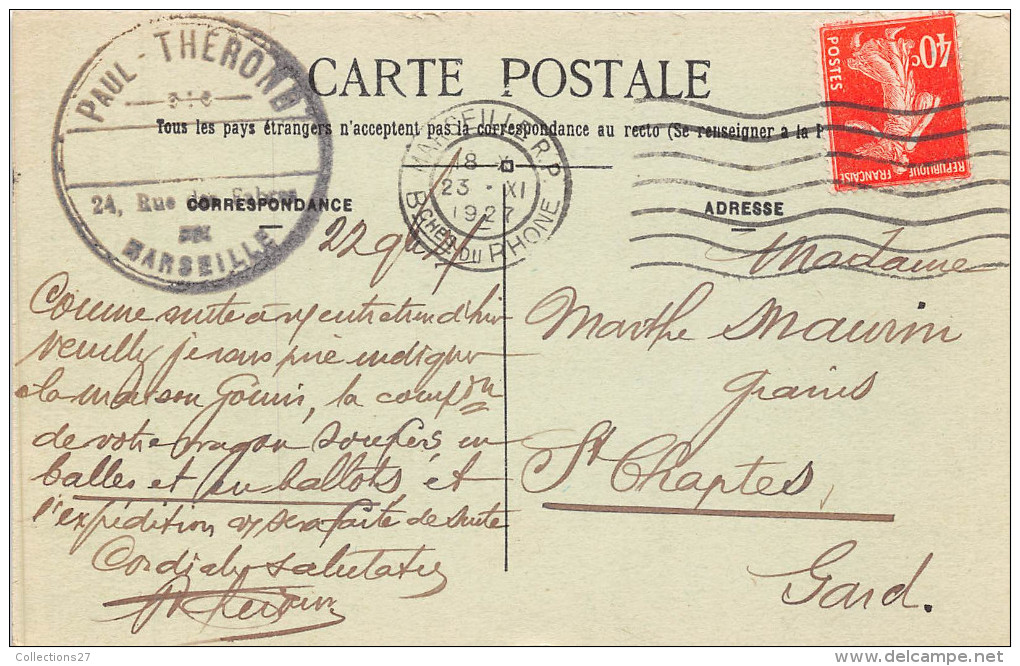 PAUL - THEROND
24, Rue des Fabres
MARSEILLE
CARTE POSTALE
Tous les pays étrangers n'acceptent pas la correspondance au recto (Se renseigner à la P
CORRESPONDANCE
ADRESSE
MARSEILLE R.P.
18
23 - XI
1927
BCHES DU RHONE
40c
POSTES
REPUBLIQUE FRANCAISE
22 9bre
Comme suite à n/ entretien d'hier
Veuillez je vous prie indiquer
à la maison la compon
de votre wagon soufres en
balles et en ballots et
l'expédition sera faite de suite
Cordiales salutations
Madame
Marthe Maurin
grains
St Chaptes
Gard.
Collections27
delcampe.net